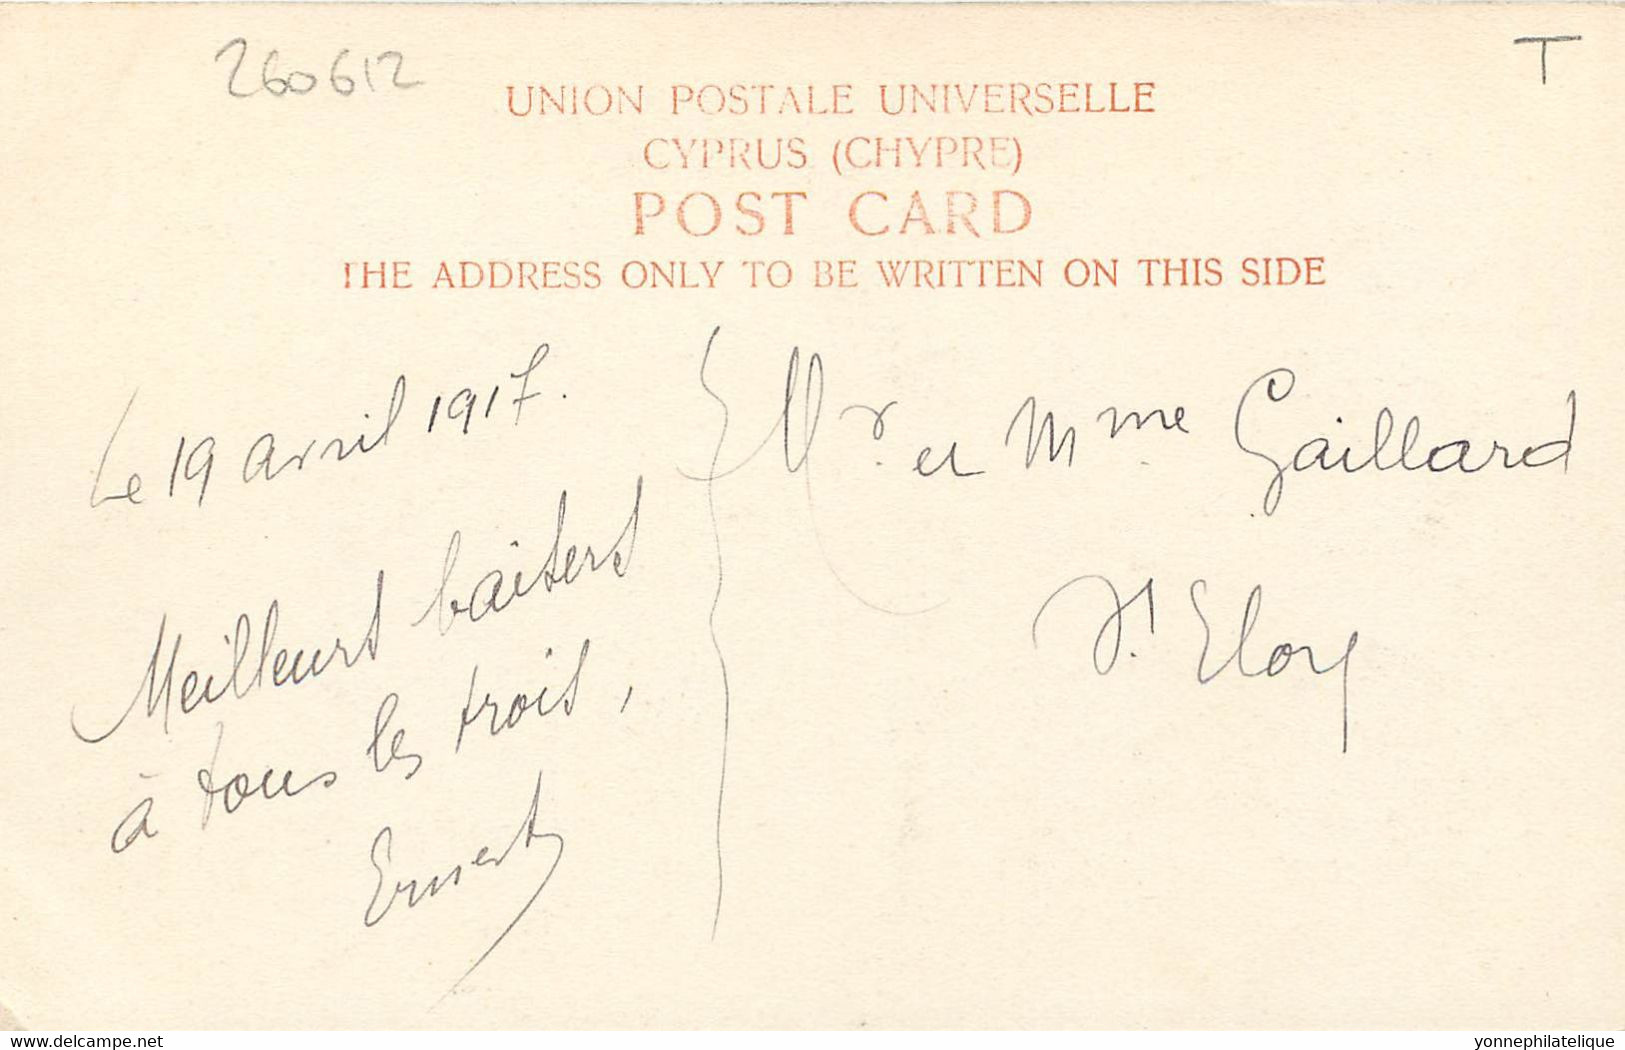 260612
T
UNION POSTALE UNIVERSELLE
CYPRUS (CHYPRE)
POST CARD
THE ADDRESS ONLY TO BE WRITTEN ON THIS SIDE
Le 19 avril 1917.
Meilleurs baisers
à tous les trois,
Ernest
Mr. et Mme Gaillard
St. Eloy
delcampe.net
yonnephilatelique